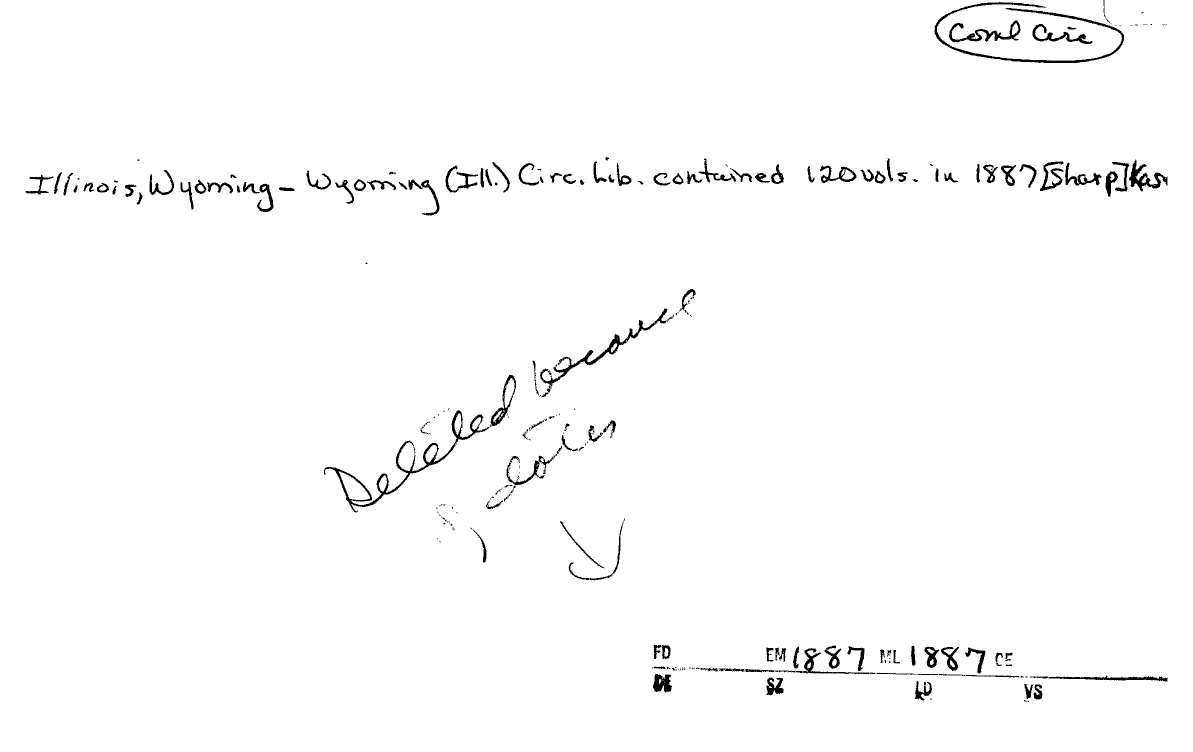 Coml Circ
Illinois, Wyoming - Wyoming (Ill.) Circ. Lib. contained 120 vols. in 1887 [Sharp] Kas
Deleted because
of dates
FD EM 1887 ML 1887 CE
DE SZ LD VS